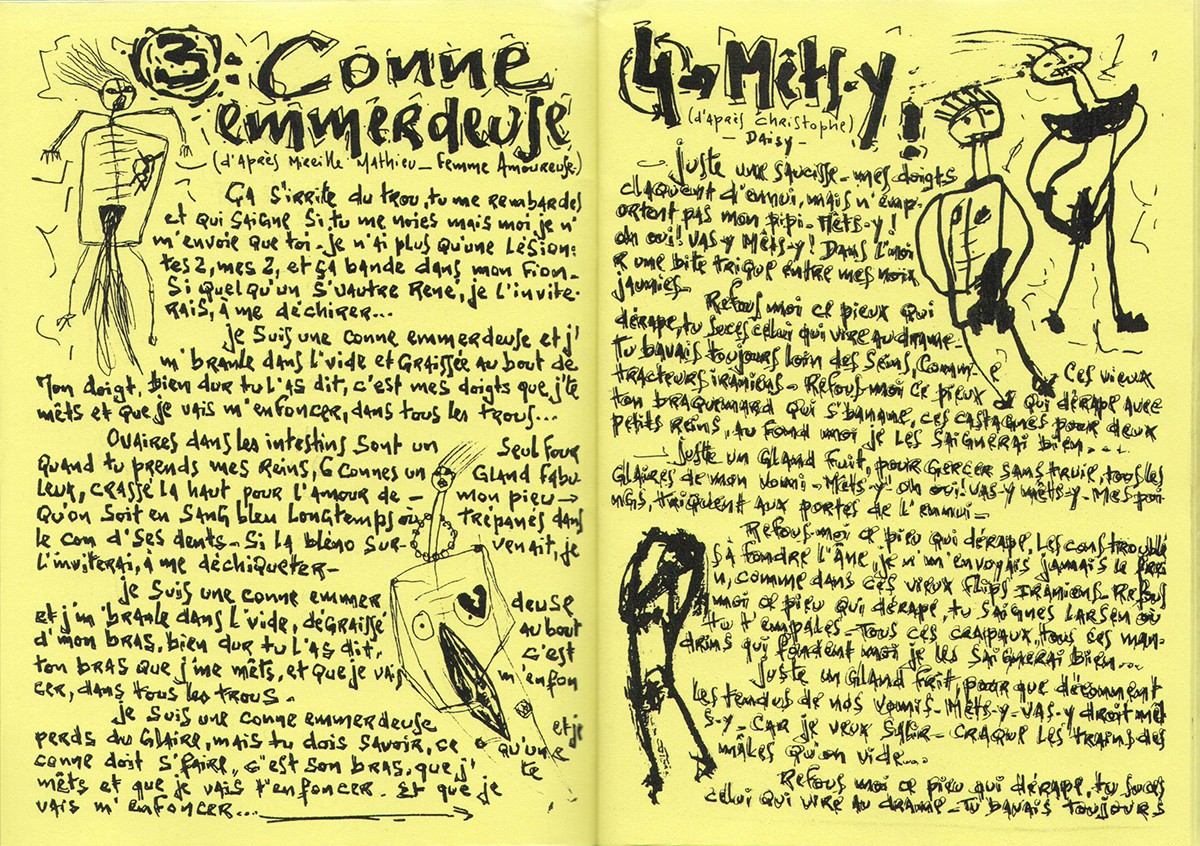 3: Conne
emmerdeuse
(d'après Mireille Mathieu - Femme Amoureuse)
ÇA S'irrite du trou, tu me rembardes
et qui saigne si tu me noies mais moi je n'
m'envoie que toi - je n'ai plus qu'une Lésion:
tes 2, mes 2, et ça bande dans mon Fion -
Si quelqu'un s'vautre René, je l'invite-
rais, à me déchirer...
je suis une conne emmerdeuse et j'
m'branle dans l'vide et graissée au bout de
mon doigt, bien dur tu l'as dit, c'est mes doigts que j'te
mêts et que je vais m'enfoncer, dans tous les trous...
Ovaires dans les intestins sont un seul four
quand tu prends mes reins, 6 connes un gland fabu
leux, crasse la haut pour l'amour de - mon pieu →
qu'on soit en sang bleu longtemps où trépanés dans
le con d'ses dents - Si la bléno sur- venait, je
l'inviterai, à me déchiqueter -
je suis une conne emmer deuse
et j'm'branle dans l'vide, dégraissé au bout
d'mon bras, bien dur tu l'as dit, c'est
ton bras que j'me mêts, et que je vais m'enfon
cer, dans tous les trous -
je suis une conne emmerdeuse et je
perds du glaire, mais tu dois savoir, ce qu'une
conne doit s'faire, c'est son bras, que j' te
mêts et que je vais t'enfoncer. Et que je
vais m'enfoncer...
4 → Mêts-y!
(d'après Christophe)
- Daisy -
juste une saucisse - mes doigts
claquent d'ennui, mais n'emp-
ortent pas mon pipi - Mêts-y!
oh oui! vas-y Mêts-y! Dans l'noi
r une bite trique entre mes noix
jaunies -
Refous moi ce pieux qui
dérape, tu suces celui qui vire au drame -
Tu bavais toujours loin des seins, comm e ces vieux
tracteurs iraniens - Refous-moi ce pieux qui dérape avec
ton braquemard qui s'banane, ces castagnes pour deux
petits reins, au fond moi je les saignerai bien....
juste un gland fuit, pour gercer sans truie, tous les
glaires de mon vomi - Mêts-y oh oui! vas-y mêts-y - Mes poi
ngs, triquent aux portes de l'ennui -
Refous-moi ce pieu qui dérape, les cons troublé
s à fondre l'âne, je n'm'envoyais jamais le
n, comme dans ces vieux flips iraniens - Refous
moi ce pieu qui dérape, tu saignes Larsen où
tu t'empales - Tous ces crapaux, tous ces man-
drins qui fondent moi je les saignerai bien....
juste un gland frit pour que décemment
les tendus de nos vomis - Mêts-y - vas-y droit mêt
s-y - Car je veux salir - craque les trains des
mâles qu'on vide....
Refous moi ce pieu qui dérape, tu suces
celui qui vire au drame - Tu bavais toujours